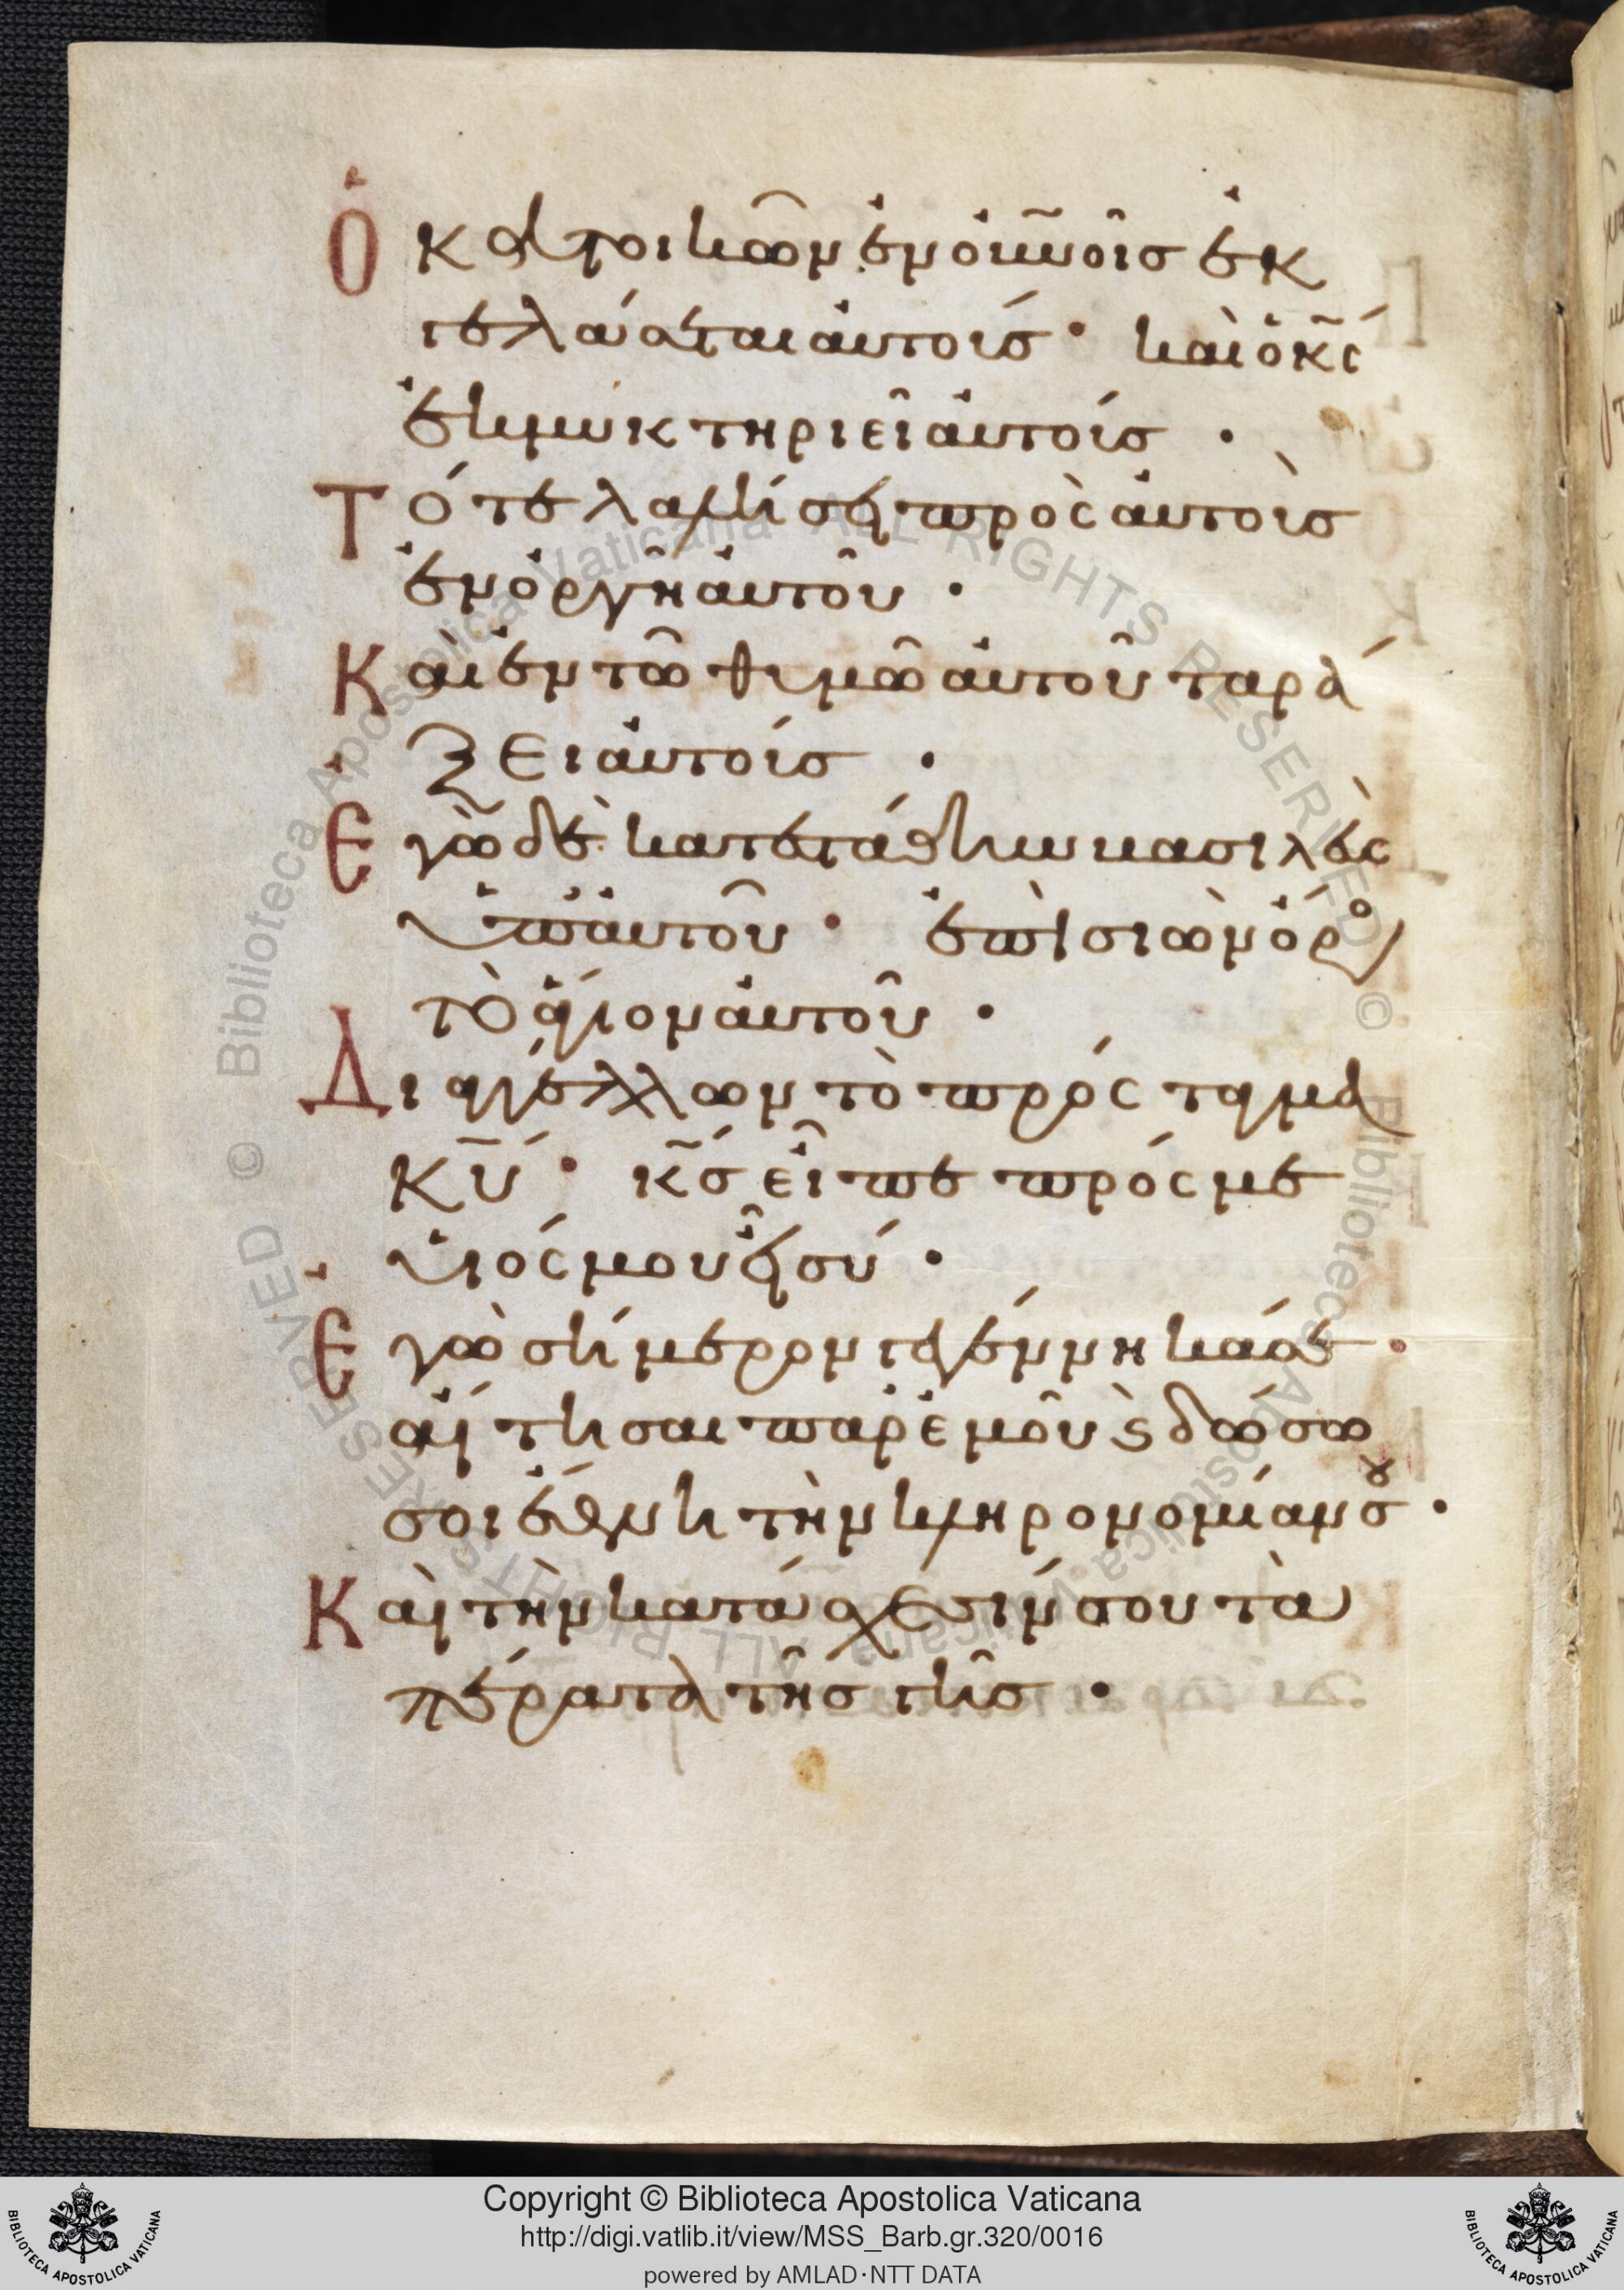 Ὁ κατοικῶν ἐν οὐνοῖσ ἐκ
γελάσεται αὐτούσ · καὶ ὁ κ̅σ̅
ἐκμυκτηριεῖ αὐτούσ ·
Τότε λαλήσει πρὸς αὐτοὺσ
ἐν ὀργῆ αὐτοῦ ·
Καὶ ἐν τῶ θυμῶ αὐτοῦ ταρά
ξει αὐτούσ ·
Ἐγὼ δὲ κατεστάθην βασιλεὺς
ὑπ' αὐτοῦ · ἐπὶ σιὼν ὄρος
τὸ ἅγιον αὐτοῦ ·
Διαγγέλλων τὸ πρόσταγμα
κ̅υ̅ · κ̅σ̅ εἶπε πρός με
υἱός μου εἶ σύ ·
Ἐγὼ σήμερον γεγέννηκά σε ·
αἴτησαι παρ' ἐμοῦ ϛ δώσω
σοι ἔθνη τὴν κληρονομίαν σου ·
Καὶ τὴν κατάσχεσίν σου τὰ
πέρατα τῆσ γῆσ ·
© Biblioteca Apostolica Vaticana ALL RIGHTS RESERVED
© Biblioteca Apostolica Vaticana ALL RIGHTS RESERVED
BIBLIOTECA APOSTOLICA VATICANA
Copyright © Biblioteca Apostolica Vaticana
http://digi.vatlib.it/view/MSS_Barb.gr.320/0016
powered by AMLAD·NTT DATA
BIBLIOTECA APOSTOLICA VATICANA